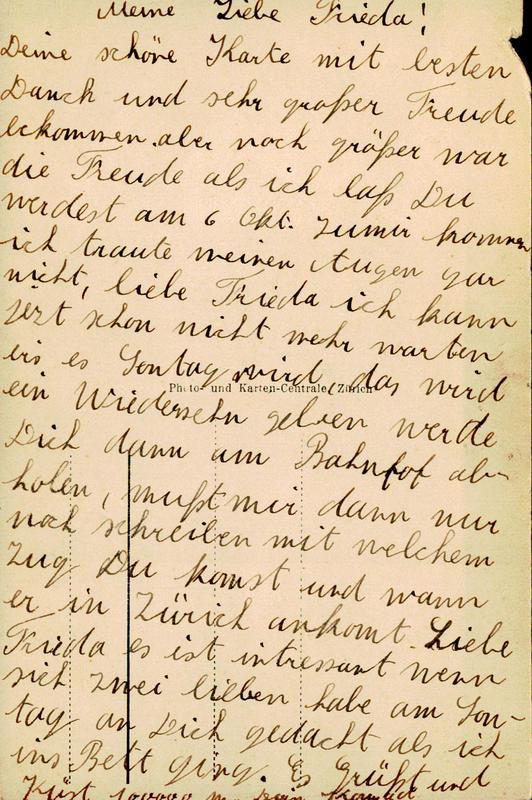 Meine Liebe Frieda!
Deine schöne Karte mit besten
Danck und sehr großer Freude
bekommen. aber noch größer war
die Freude als ich laß Du
werdest am 6 Okt. zumir kommen
ich traute meinen Augen gar
nicht, liebe Frieda ich kann
jezt schon nicht mehr warten
bis es Sontag wird, das wird
Photo- und Karten-Centrale, Zürich
ein Wiedersehn geben werde
Dich dann am Bahnhof ab-
holen, mußt mir dann nur
noch schreiben mit welchem
Zug Du komst und wann
er in Zürich ankomt. Liebe
Frieda es ist intressant wenn
sich zwei lieben habe am Son-
tag an Dich gedacht als ich
ins Bett ging. Es Grüßt und
Küst 100000 m. Dein